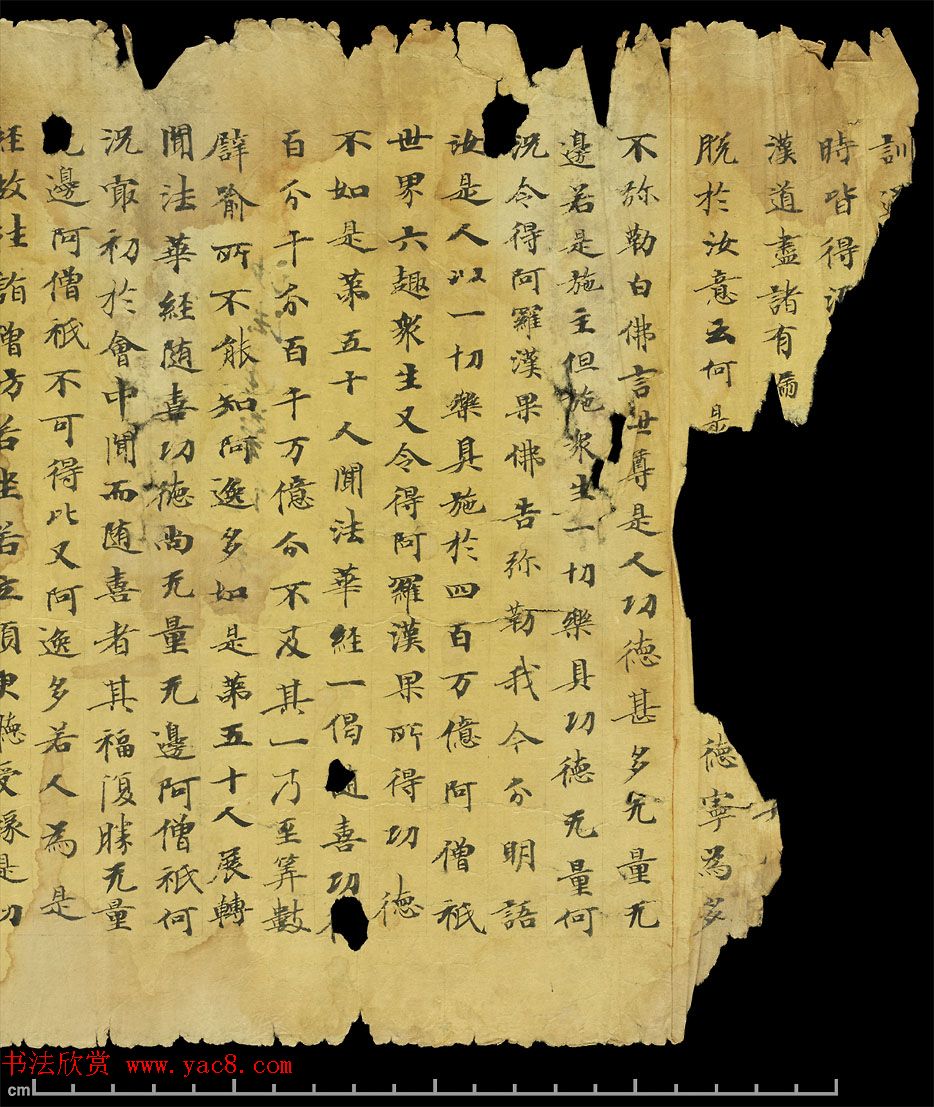 訓
時皆得
漢道盡諸有
脫於汝意云何是 德寧為多
不弥勒白佛言世尊是人功德甚多無量无
邊若是施主但施衆生一切樂具功德无量何
況令得阿羅漢果佛告弥勒我今分明語
汝是人以一切樂具施於四百万億阿僧祇
世界六趣衆生又令得阿羅漢果所得功德
不如是第五十人聞法華経一偈随喜功
百分千分百千万億分不及其一乃至筭數
譬喻所不能知阿逸多如是第五十人展轉
聞法華経随喜功徳尚无量无邊阿僧祇何
況寂初於會中聞而随喜者其福復勝无量
无邊阿僧祇不可得比又阿逸多若人為是
経故往詣僧坊若坐若立須臾聴受緣是功
书法欣赏 www.yac8.com
cm